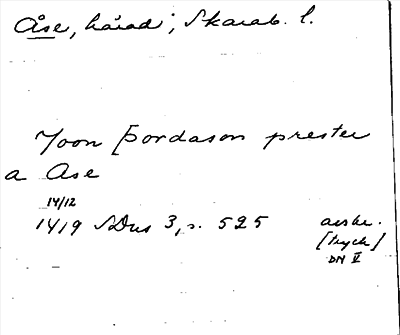 Åse, härad; Skarab. l.
Joon Þordason prester
a Ase
14/12
1419 SDns 3, s. 525 avskr.
[tryck]
DN V